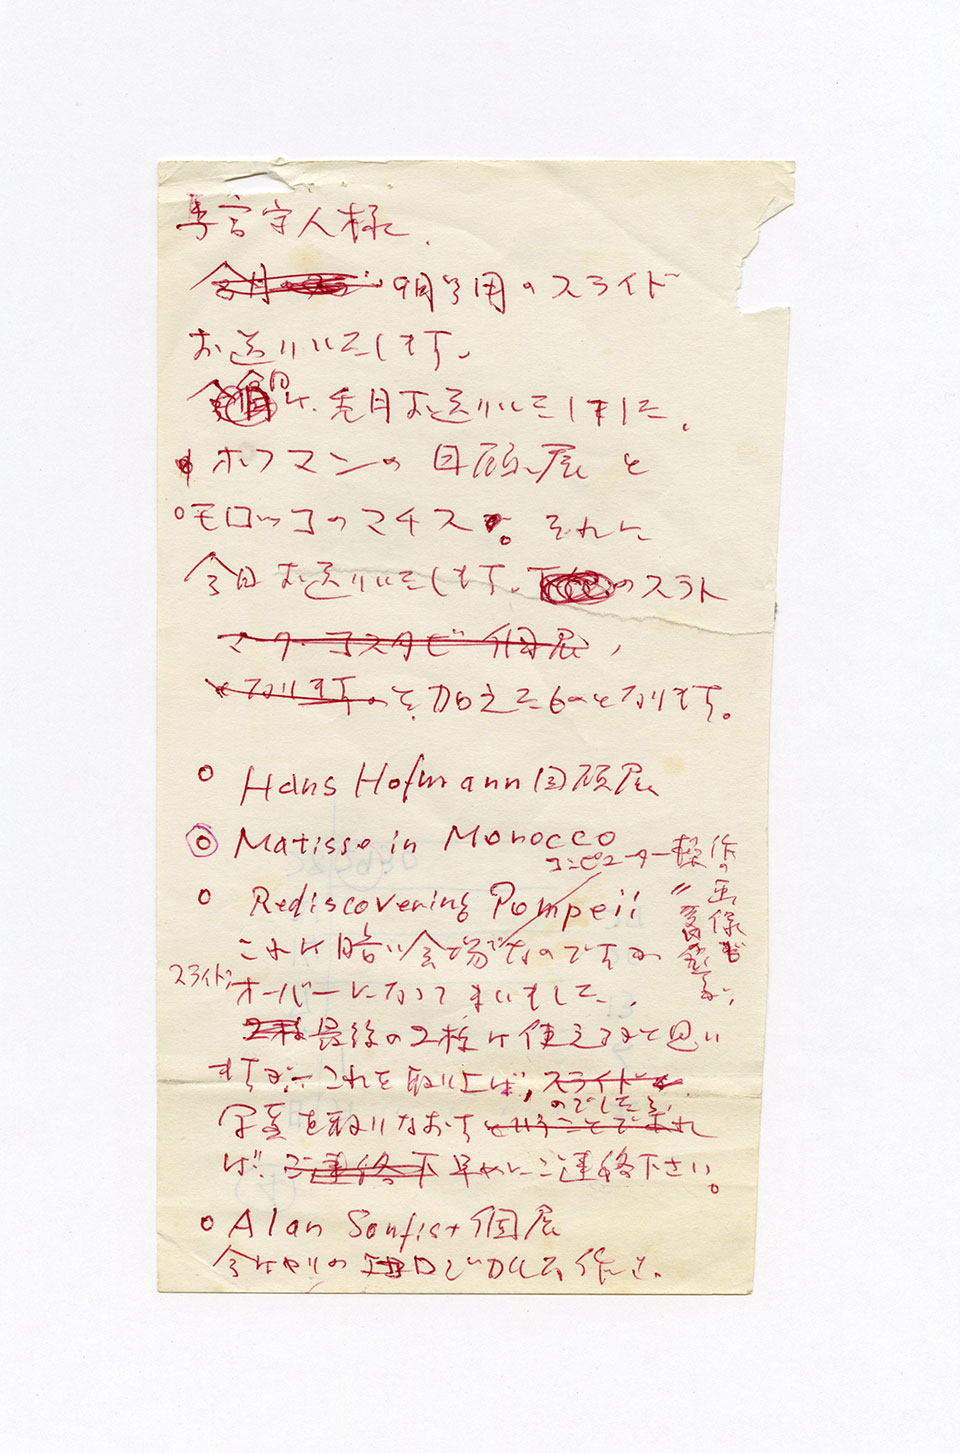 守人様
9月号用のスライド
お送りいたします。
今回は、先月お送りいたしました、
ホフマンの回顧展と
モロッコのマチス。それに
今日お送りいたします。のスライド
マーク・コスタビ個展
となりますのを加えたものとなります。
Hans Hofmann回顧展
Matisse in Morocco
コンピューター操作の画像も
Rediscovering Pompeii
これは暗い会場なのですが
スライド、オーバーになってしまいました、
最後の2枚は使えると思い
ますが、これを取り上げ、スライド
のでしたら、
写真を取りなおす
ば、ご連絡下 早めにご連絡下さい。
Alan Sonfist個展